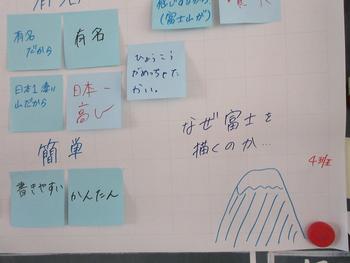 有名
だから
有名
(富士山が)
日本1高い
山だから
日本一
高い
ひょうこう
がめっちゃた
かい。
簡単
書きやすい
かんたん
なぜ富士を
描くのか…
4班